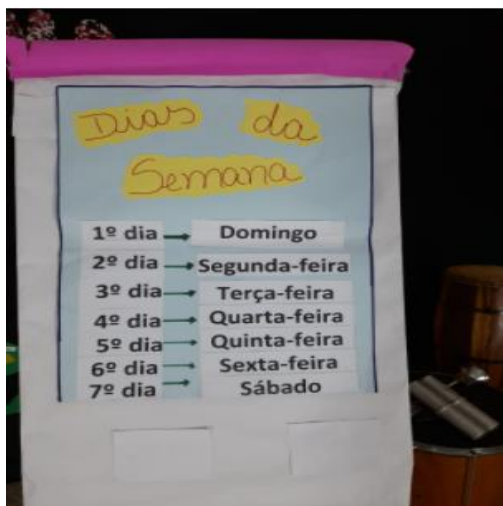 Dias da
Semana
1º dia → Domingo
2º dia → Segunda-feira
3º dia → Terça-feira
4º dia → Quarta-feira
5º dia → Quinta-feira
6º dia → Sexta-feira
7º dia → Sábado